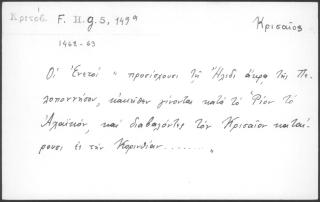 Κριτόβ. F. H. g. 5, 149ᵅ
Κρισαῖος
1462-63
Οἱ Ἐνετοὶ " προσίσχουσι τῇ Ἤλιδι ἄκρᾳ τῆς Πε
λοποννήσου, κἀκεῖθεν γίνονται κατὰ τὸ Ῥίον τὸ
Ἀχαϊκόν, καὶ διαβαλόντες τὸν Κρισαῖον καταί
ρουσι ἐς τὴν Κορινθίαν......... "